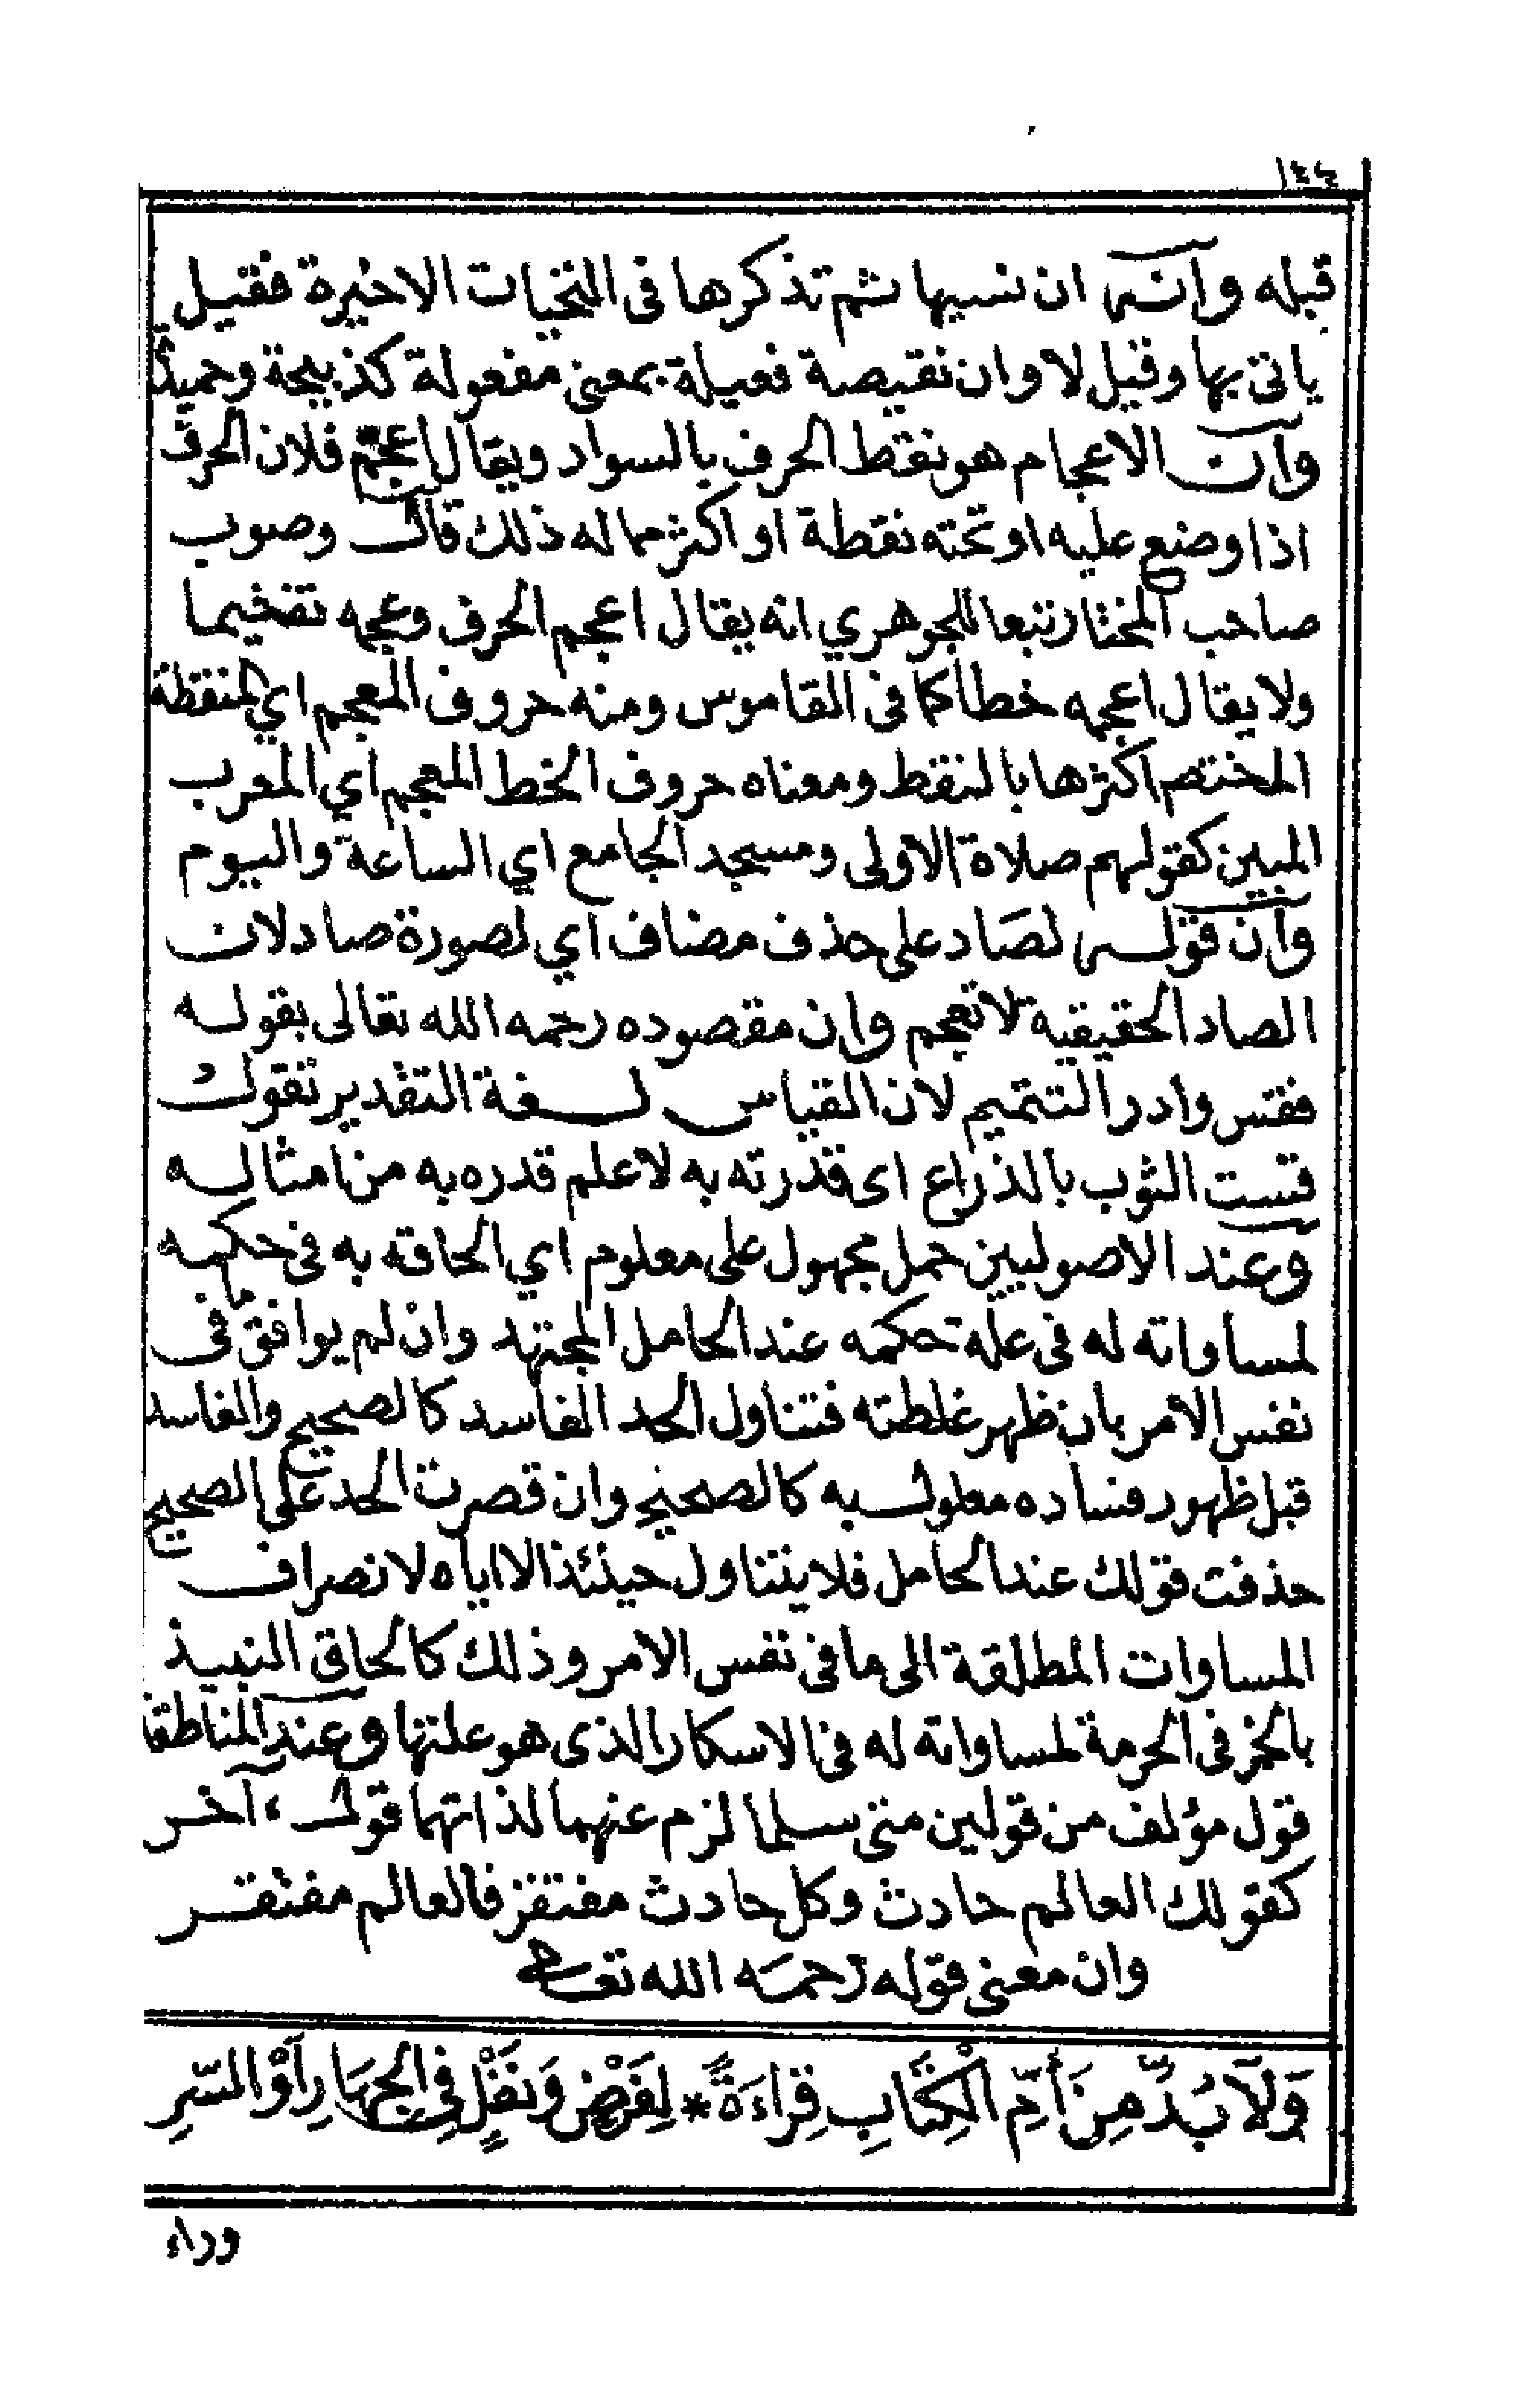 ١٤٤
قبله وانه ان نسيها ثم تذكرها فى التحيات الاخيرة فقيل
ياتى بها وقيل لا وان نقيصة فعيلة بمعنى مفعولة كذبيحة وحميدة
وان الاعجام هو نقط الحرف بالسواد ويقال اعجم فلان الحرف
اذا وضع عليه او تحته نقطة او اكثر مما له ذلك قال وصوب
صاحب المختار تبعا للجوهري انه يقال اعجم الحرف وعجمه تفخيما
ولا يقال اعجمه خطا كما فى القاموس ومنه حروف المعجم اي المنقطة
المختص اكثرها بالنقط ومعناه حروف الخط المعجم اي المعرب
المبين كقولهم صلاة الاولى ومسجد الجامع اي الساعة واليوم
وان قوله لصَاد على حذف مضاف اي لصورة صاد لان
الصاد الحقيقية لا تعجم وان مقصوده رحمه الله تعالى بقوله
فقس وادر التتميم لان القياس لغة التقدير تقول
قست الثوب بالذراع اى قدرته به لاعلم قدره به من امثاله
وعند الاصوليين حمل مجهول على معلوم اي الحاقه به فى حكمه
لمساواته له فى علة حكمه عند الحامل المجتهد وان لم يوافق ما فى
نفس الامر بان ظهر غلطته فتناول الحد الفاسد كالصحيح والفاسد
قبل ظهور فساده معلول به كالصحيح وان قصرت الحد على الصحيح
حذفت قولك عند الحامل فلا يتناول حينئذ الا اياه لانصراف
المساوات المطلقة الى ما فى نفس الامر وذلك كالحاق النبيذ
بالخمر فى الحرمة لمساواته له فى الاسكار الذى هو علتها وعند المناطقة
قول مؤلف من قولين متى سلما لزم عنهما لذاتهما قول آخر
كقولك العالم حادث وكل حادث مفتقر فالعالم مفتقر
وان معنى قوله رحمه الله تعالى
وَلَا بُدَّ مِنْ أُمِّ الْكِتَابِ قِرَاءَةً * لِفَرْضٍ وَنَفْلٍ فِي الجِهَارِ أَوْ السِّرِ
وراء